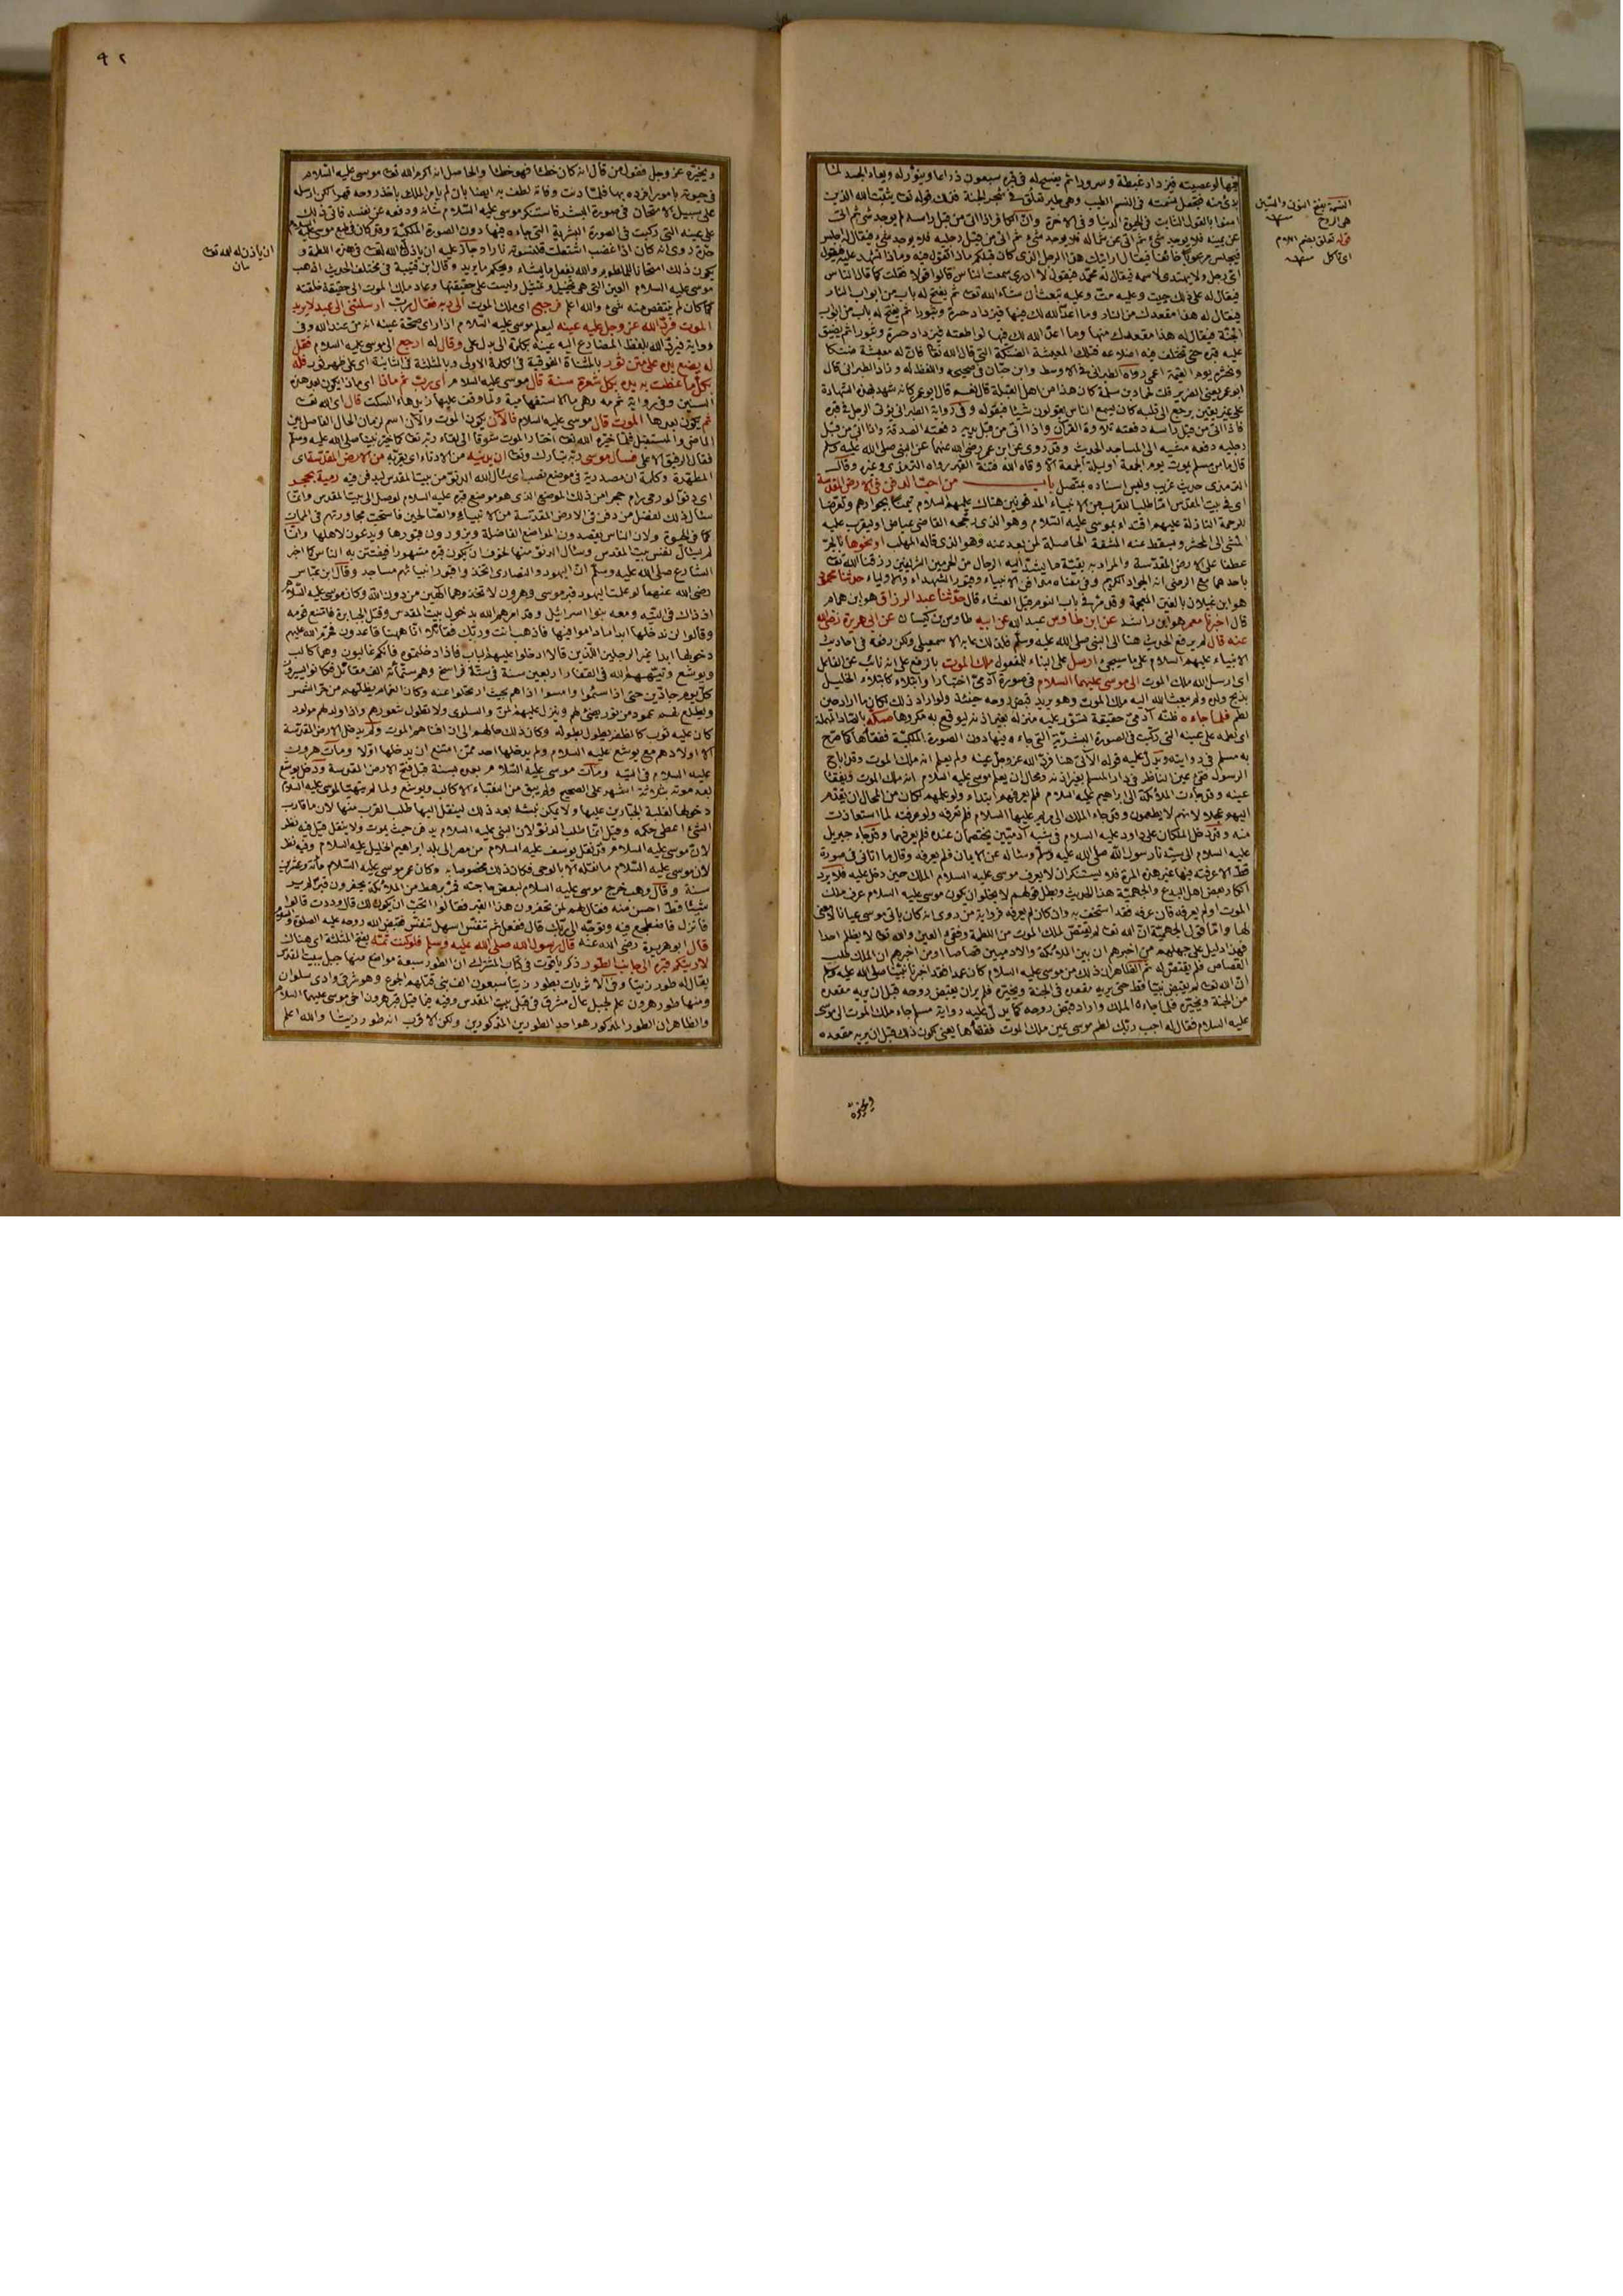 فيها لو عصيته فيزداد غبطة وسرورا ثم يفسح له في قبره سبعون ذراعا وينوّر له ويعاد الجسد لما
بدئ منه فتجعل نسمته في النسم الطيب وهي طير تعلق في شجر الجنة فذلك قوله تعالى يثبّت الله الذين
آمنوا بالقول الثابت في الحيوة الدنيا وفي الآخرة وانّ الكافر اذا اتى من قبل راسه لم يوجد شئ ثم اتى
عن يمينه فلا يوجد شئ ثم اتى عن شماله فلا يوجد شئ ثم اتى من قبل رجليه فلا يوجد شئ فيقال له اجلس
فيجلس مرعوبا خائفا فيقال ارايتك هذا الرجل الذي كان فيكم ماذا تقول فيه وماذا تشهد عليه فيقول
اىّ رجل ولا يهتدى لاسمه فيقال له محمد فيقول لا ادرى سمعت الناس قالوا قولا فقلت كما قال الناس
فيقال له على ذلك حييت وعليه متّ وعليه تبعث ان شاء الله تعالى ثم يفتح له باب من ابواب النار
فيقال له هذا مقعدك من النار وما اعدّ الله لك فيها فيزداد حسرة وثبورا ثم يفتح له باب من ابواب
الجنّة فيقال له هذا مقعدك منها وما اعدّ الله لك فيها لو اطعته فيزداد حسرة وثبورا ثم يضيق
عليه قبره حتى تختلف فيه اضلاعه فتلك المعيشة الضنكة التي قال الله تعالى فانّ له معيشة ضنكا
ونحشره يوم القيمة اعمى رواه الطبراني في الاوسط وابن حبّان في صحيحه واللفظ له وزاد الطبراني قال
ابو عمر يعني الضرير قلت لحماد بن سلمة كان هذا من اهل القبلة قال نعم قال ابو عمر كانه شهد بهذه الشهادة
على غير يقين يرجع الى قلبه كان يسمع الناس يقولون شيئا فيقوله وفي رواية الطبراني يؤتى الرجل في قبره
فاذا اتى من قبل راسه دفعته تلاوة القرآن واذا اتى من قبل يديه دفعته الصدقة واذا اتى من قبل
رجليه دفعه مشيه الى المساجد الحديث وقد روى عن ابن عمر رضى الله عنهما عن النبي صلى الله عليه وسلم
قال ما من مسلم يموت يوم الجمعة او ليلة الجمعة الا وقاه الله فتنة القبر رواه الترمذي وغيره وقال
الترمذي حديث غريب وليس اسناده بمتصل باب من احبّ الدفن في الارض المقدسة
اى في بيت المقدس امّا طلبا للقرب من الانبياء المدفونين هناك عليهم السلام تيمنا بجوارهم وتعرضا
للرحمة النازلة عليهم اقتداء بموسى عليه السلام وهو الذي رجحه القاضي عياض او ليقرب عليه
المشى الى المحشر ويسقط عنه المشقة الحاصلة لمن بعد عنه وهو الذي قاله المهلب او نحوها بالجرّ
عطفا على الارض المقدّسة والمراد به بقيّة ما يشدّ اليه الرحال من الحرمين الشريفين رزقنا الله تعالى
باحدهما مع الرضى انه الجواد الكريم وفي معناه مدافن الانبياء وقبور الشهداء والاولياء حدثنا محمود
هو ابن غيلان بالغين المعجمة وقد مرّ في باب النوم قبل العشاء قال حدّثنا عبد الرزاق هو ابن همام
قال اخبرنا معمر هو ابن راشد عن ابن طاوس عبد الله عن ابيه طاوس بن كيسان عن ابي هريرة رضى الله
عنه قال لم يرفع الحديث هنا الى النبي صلى الله عليه وسلم فلذلك عابه الاسمعيلي ولكن رفعه في احاديث
الانبياء عليهم السلام على ما سيجئ ارسل على البناء للمفعول ملك الموت بالرفع على انه نائب عن الفاعل
اى ارسل الله ملك الموت الى موسى عليهما السلام في صورة آدمىّ اختبارا وابتلاء كابتلاء الخليل
بذبح ولده ولم يبعث الله اليه ملك الموت وهو يريد قبض روحه حينئذ ولو اراد ذلك لكان ما اراد حين
لطم فلما جاءه ظنّه آدمىّ حقيقة تسوّر عليه منزله بغير اذنه ليوقع به مكروها صكّه بالصاد المهملة
اى لطمه على عينه التي ركّبت في الصورة البشريّة التي جاءه فيها دون الصورة الملكيّة ففقأها كما صرّح
به مسلم في روايته ويدلّ عليه قوله الآتي هنا فردّ الله عز وجل عينه ولم يعلم انه ملك الموت وقد اباح
الرسول فقئ عين الناظر في دار المسلم بغير اذنه ومحال ان يعلم موسى عليه السلام انه ملك الموت ويفقأ
عينه وقد جاءت الملائكة الى ابراهيم عليه السلام فلم يعرفهم ابتداء ولو علمهم لكان من المحال ان يقدّم
اليهم عجلا لانهم لا يطعمون وقد جاء الملك الى مريم عليها السلام فلم تعرفه ولو عرفته لما استعاذت
منه وقد دخل الملكان على داود عليه السلام في شبه آدميّين يختصمان عنده فلم يعرفهما وقد جاء جبريل
عليه السلام الى سيّدنا رسول الله صلى الله عليه وسلم وسأله عن الايمان فلم يعرفه وقال ما اتاني في صورة
قطّ الا عرفته فيها غير هذه المرة فلا يستنكر ان لا يعرف موسى عليه السلام الملك حين دخل عليه فلا يرد
انكار بعض اهل البدع والجهميّة هذا الحديث وبطل قولهم لا يخلو ان يكون موسى عليه السلام عرف ملك
الموت اولم يعرفه فان عرفه فقد استخف به وان كان لم يعرفه فرواية من روى انه كان ياتي موسى عيانا لا معنى
لها وامّا قول الجهميّة انّ الله تعالى لم يقتصّ لملك الموت من اللطمة وفقئ العين والله تعالى لا يظلم احدا
فهذا دليل على جهلهم من اخبرهم ان بين الملائكة والآدميين قصاصا ومن اخبرهم ان الملك طلب
القصاص فلم يقتصّ له ثم الظاهر ان ذلك من موسى عليه السلام كان عمدا فقد اخبرنا نبيّنا صلى الله عليه وسلم
انّ الله تعالى لم يقبض نبيّا قطّ حتى يريه مقعده في الجنة ويخيّره فلم ير ان يقبض روحه قبل ان يريه مقعده
من الجنة ويخيّره فلما جاءه الملك واراد قبض روحه كما يدلّ عليه رواية مسلم جاء ملك الموت الى موسى
عليه السلام فقال له اجب ربّك لطم موسى عين ملك الموت ففقأها يعني يكون ذلك قبل ان يريه مقعده
النسمة بفتح النون والسين
هي الروح منه
قوله تعلق بضم اللام
اى تأكل منه
ويخيره
٩٢
ويخيّره عز وجل فقول من قال انه كان خطأ فهو خطأ والحاصل انه اكرم الله تعالى موسى عليه السّلام
في حيوته بامور افرده بها فلمّا دنت وفاته لطف به ايضا بان لم يامر الملك باخذ روحه قهرا لكن ارسله
على سبيل الامتحان في صورة البشر فاستنكر موسى عليه السّلام شانه ودفعه عن نفسه فاتى ذلك
على عينه التي ركبت في الصورة البشرية التي جاءه فيها دون الصورة الملكيّة وقد كان في طبع موسى عليه السلام
حدّة روى انه كان اذا غضب اشتعلت قلنسوته نارا وجاز عليه ان ياذن الله تعالى في هذه اللطمة و
يكون ذلك امتحانا للملطوم والله يفعل ما يشاء ويحكم ما يريد وقال ابن قتيبة في مختلف الحديث اذهب
موسى عليه السلام العين التي هي تخييل وتمثيل وليست على حقيقتها وعاد ملك الموت الى حقيقة خلقته
كما كان لم ينتقص منه شئ والله اعلم فرجع اى ملك الموت الى ربه فقال ربّ ارسلتني الى عبد لا يريد
الموت فردّ الله عز وجل عليه عينه ليعلم موسى عليه السّلام اذا راى صحّة عينه انه من عند الله وفي
رواية فيردّ الله بلفظ المضارع اليه عينه بكلمة الى بدل على وقال له ارجع الى موسى عليه السلام فقل
له يضع يده على متن ثور بالمثنّاة الفوقية في الكلمة الاولى وبالمثلثة في الثانية اى على ظهر ثور فله
بكلّ ما غطت به يده بكل شعرة سنة قال موسى عليه السلام اى ربّ ثم ماذا اى ماذا يكون بعد هذه
السنين وفي رواية ثم مه وهي ما الاستفهامية ولما وقف عليها زيد هاء السكت قال اى الله تعالى
ثم يكون بعدها الموت قال موسى عليه السلام فالآن يكون الموت والآن اسم لزمان الحال الفاصل بين
الماضي والمستقبل فلمّا خيّره الله تعالى اختار الموت شوقا الى لقاء ربه تعالى كما خيّر نبيّنا صلى الله عليه وسلم
فقال الرفيق الاعلى فسأل موسى ربّه تبارك وتعالى ان يدنيه من الادناء اى يقرّبه من الارض المقدّسة اى
المطهّرة وكلمة ان مصدرية في موضع نصب اى سأل الله الدنوّ من بيت المقدس ليدفن فيه رمية بحجر
اى دنوّا لو رمى رام حجرا من ذلك الموضع الذي هو موضع قبره عليه السلام لوصل الى بيت المقدس وانّما
سأل ذلك لفضل من دفن في الارض المقدّسة من الانبياء والصالحين فاستحبّ مجاورتهم في الممات
كما في الحيوة ولان الناس يقصدون المواضع الفاضلة ويزورون قبورها ويدعون لاهلها وانّما
لم يسأل نفس بيت المقدس وسأل الدنوّ منها لخوف ان يكون قبره مشهورا فيفتتن به الناس كما اخبر
الشارع صلى الله عليه وسلم انّ اليهود والنصارى اتخذوا قبور انبيائهم مساجد وقال ابن عبّاس
رضى الله عنهما لو علمت اليهود قبر موسى وهرون لاتخذوهما الهين من دون الله وكان موسى عليه السّلام
اذ ذاك في التيه ومعه بنوا اسرائيل وقد امرهم الله بدخول بيت المقدس وقتل الجبابرة فامتنع قومه
وقالوا لن ندخلها ابدا ما داموا فيها فاذهب انت وربّك فقاتلا انّا ههنا قاعدون فحرّم الله عليهم
دخولها ابدا غير الرجلين اللّذين قالا ادخلوا عليهم الباب فاذا دخلتموه فانكم غالبون وهما كالب
ويوشع وتيّههم الله في القفار اربعين سنة في ستّة فراسخ وهم ستّمائة الف مقاتل فكانوا يسيرون
كلّ يوم جادّين حتى اذا سئموا وامسوا اذا هم بحيث ارتحلوا عنه وكان الغمام يظلّهم من حرّ الشمس
ويطلع لهم عمود من نور يضئ لهم وينزل عليهم المنّ والسلوى ولا تطول شعورهم واذا ولد لهم مولود
كان عليه ثوب كالظفر يطول بطوله وكان ذلك حالهم الى ان افناهم الموت ولم يدخل الارض المقدّسة
الا اولادهم مع يوشع عليه السلام ولم يدخلها احد ممّن امتنع ان يدخلها اوّلا ومات هرون
عليه السلام في التيه ومات موسى عليه السّلام بعده بسنة قبل فتح الارض المقدسة ودخل يوشع
بعد موته بثلاثة اشهر على الصحيح ولم يبق من النقباء الا كالب ويوشع ولما لم يتهيّأ لموسى عليه السلام
دخولها لغلبة الجبّارين عليها ولا يمكن نبشه بعد ذلك لينقل اليها طلب القرب منها لان ما قارب
الشئ اعطى حكمه وقيل انّما طلب الدنوّ لان النبي عليه السلام يدفن حيث يموت ولا ينقل قيل فيه نظر
لانّ موسى عليه السلام قد نقل يوسف عليه السلام من مصر الى بلد ابراهيم الخليل عليه السلام وفيه نظر
لانّ موسى عليه السّلام ما نقله الا بالوحي فكان ذلك مخصوصا به وكان عمر موسى عليه السّلام مائة وعشرين
سنة وقال وهب خرج موسى عليه السلام لبعض حاجته فمرّ برهط من الملائكة يحفرون قبرا لم ير
شيئا قطّ احسن منه فقال لهم لمن تحفرون هذا القبر فقالوا اتحبّ ان يكون لك قال وددت قالوا
فانزل فاضطجع فيه وتوجّه الى ربّك قال ففعل ثم تنفّس اسهل تنفّس فقبض الله روحه عليه الصلوة والسلام
قال ابو هريرة رضى الله عنه قال رسول الله صلى الله عليه وسلم فلو كنت ثمّه بفتح المثلثة اى هناك
لاريتكم قبره الى جانب الطور ذكر ياقوت في كتاب المشترك ان الطور سبعة مواضع منها جبل ببيت المقدس
يقال له طور زيتا وفي الاثر مات بطور زيتا سبعون الف نبي قتلهم الجوع وهو شرقي وادى سلوان
ومنها طور هرون علم لجبل عال مشرف في قبلى بيت المقدس وفيه فيما قيل قبر هرون اخى موسى عليهما السلام
والظاهر ان الطور المذكور هو احد الطورين المذكورين ولكن الاقرب انه طور زيتا والله اعلم
ان ياذن له الله تعالى